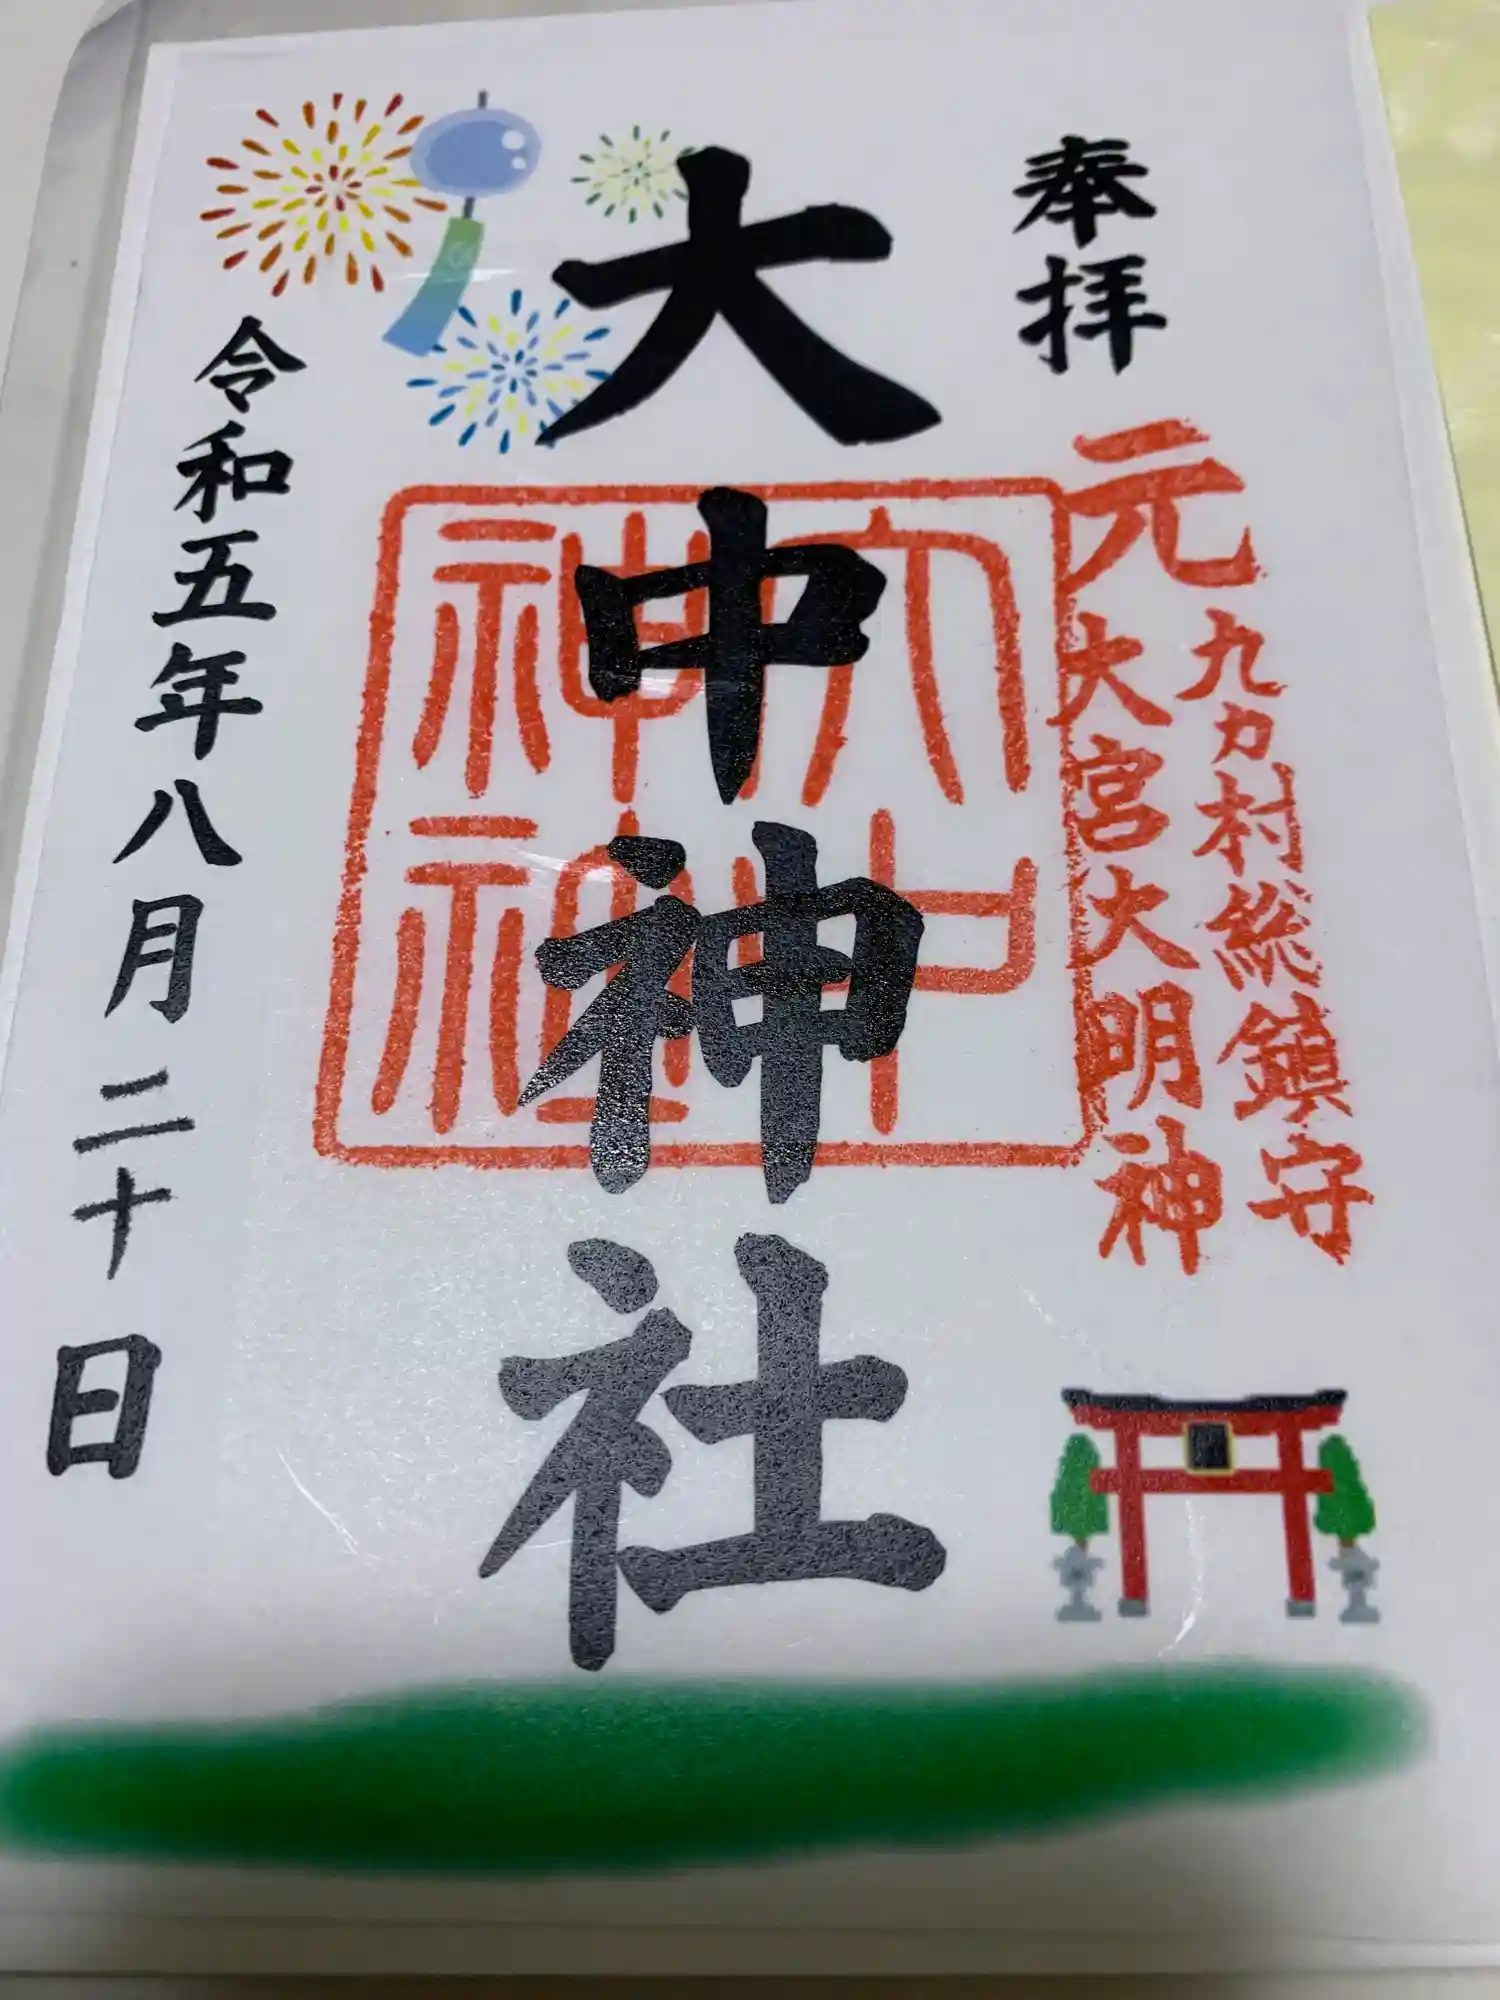 奉拝
元
九カ村総鎮守
大宮大明神
大中神社
大中
神社
令和五年八月二十日